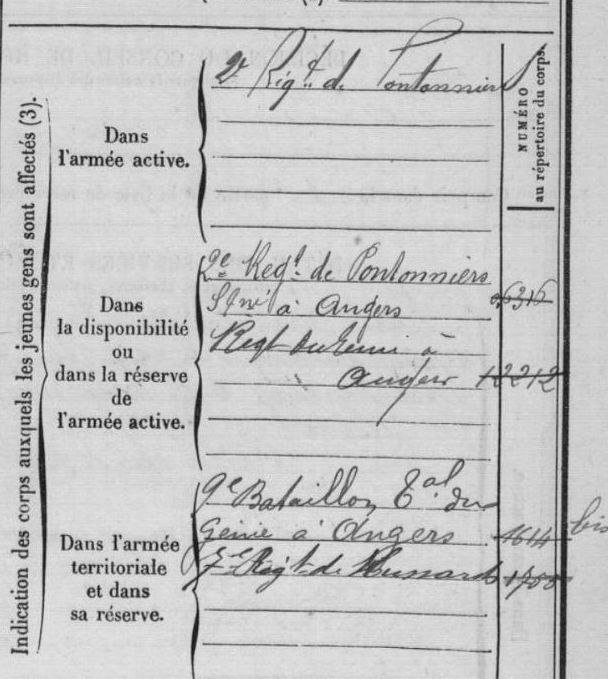 Indication des corps auxquels les jeunes gens sont affectés (3).
NUMÉRO
au répertoire du corps.
Dans
l'armée active.
2e Rég.t de Pontonniers
Dans
la disponibilité
ou
dans la réserve
de
l'armée active.
2e Reg.t de Pontonniers
à Angers 6316
Régt du Génie à
Angers 12212
Dans l'armée
territoriale
et dans
sa réserve.
9e Bataillon T.al du
Génie à Angers 4614 bis
7e Rég.t de Hussards 1788